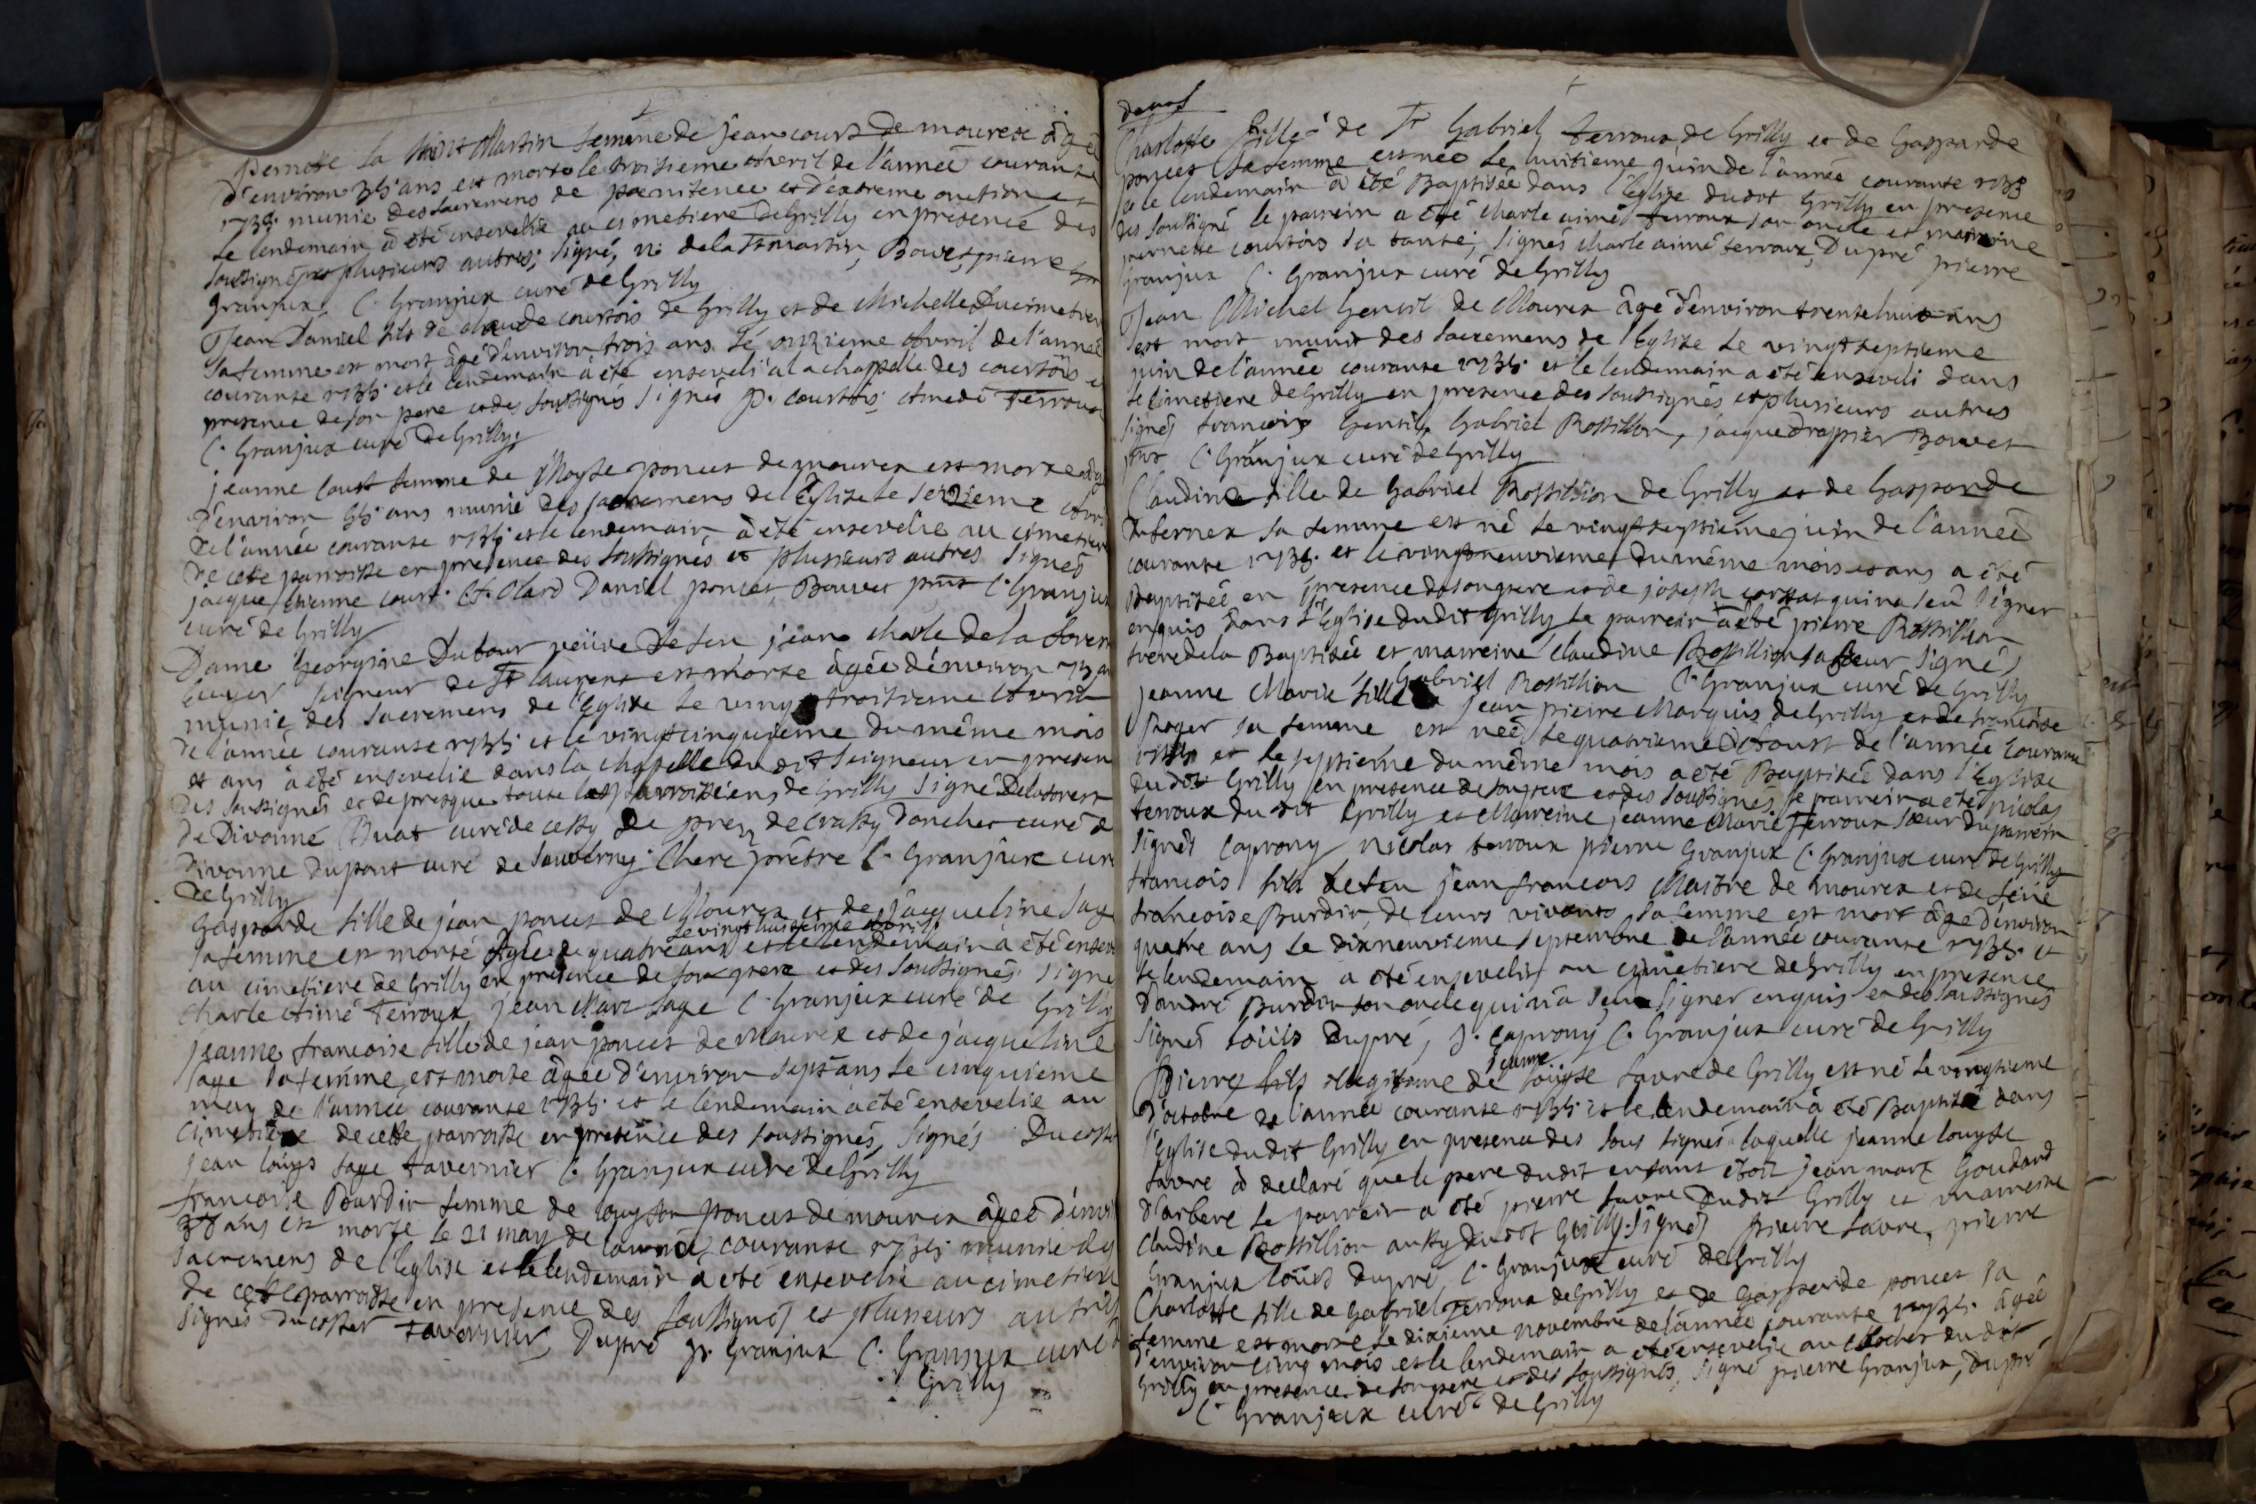 Pernette la Martin femme de jean court de mourex âgée
d'environ 35 ans est morte le troisieme avril de l'année courante
1735 munie des sacremens de penitence et d'extreme onction et
le lendemain a été ensevelie au cimetiere de Grilly en presence des
soussignés et plusieurs autres, signé, dela Martin, Bouvet, pierre
granjux, C. Granjux curé de Grilly
Jean Daniel fils de claude courtois de Grilly et de Michelle Ducimetiere
sa femme est mort âgé d'environ trois ans le onzieme Avril de l'année
courante 1735 et le lendemain a été enseveli a la chappelle des courtois en
presence de son pere et des soussignés signés P. courtois Amedé Terroux
C. Granjux curé de Grilly
jeanne court femme de Moyse poncet de mourex est morte âgée
d'environ 35 ans munie des sacremens de l'Eglise le sezieme Avril
de l'année courante 1735 et le lendemain a été ensevelie au cimetiere
de cette parroisse en presence des soussignés et plusieurs autres signés
jacque etienne court. Clard Daniel poncet Bouvet C. Granjux
curé de Grilly
Dame Georgine Dufour veuve de feu jean charle de la forest
Ecuyer Seigneur de St laurent est morte âgée d'environ 73 ans
munie des sacremens de l'Eglise le vingt troisieme Avril
de l'année courante 1735 et le vingt cinquieme du même mois
et ans a été ensevelie dans la chapelle du dit Seigneur en presence
des soussignés et de presque toute les parroissiens de Grilly signé Delaforest
de Divonne Buat curé de cessy de prez de crassy Danches curé de
Divonne Dupont curé de sauverny Chere prêtre C. Granjux curé
de Grilly
Gasparde fille de jean poncet de Mourex et de jacqueline sage
le vingt huitieme Avril
sa femme est morte âgée de quatre ans et le lendemain a été ensevelie
au cimetiere de Grilly en presence de son pere et des soussignés signés
charle Aimé Terroux jean Marc sage C. Granjux curé de Grilly
jeanne francoise fille de jean poncet de Mourex et de jacqueline
sage sa femme est morte âgée d'environ sept ans le cinquieme
may de l'année courante 1735 et le lendemain a été ensevelie au
cimetiere de cette parroisse en presence des soussignés, signés Ducoster
jean louys sage tavernier C. Granjux curé de Grilly
francoise Burdin femme de louys poncet de mourex âgée d'environ
38 ans est morte le 21 may de l'année courante 1735 munie des
sacremens de l'Eglise et le lendemain a été ensevelie au cimetiere
de cette parroisse en presence des soussignés et plusieurs autres
signés Ducoster tavernier, Dupré p. Granjux C. Granjux curé de
Grilly
Charlotte fille de Sr Gabriel Terroux de Grilly et de Gasparde
poncet sa femme est née le huitieme juin de l'année courante 1735
et le lendemain a été Baptisée dans l'Eglise dudit Grilly en presence
des soussigné le parrein a été charle aimé terroux son oncle et marreine
pernette courtois sa tante, signés charle aimé terroux, Dupré pierre
Granjux C. Granjux curé de Grilly
Jean Michel Gentil de Mourex âgé d'environ trente huit ans
est mort munit des sacremens de l'Eglise le vingt septieme
juin de l'année courante 1735 et le lendemain a été enseveli dans
le cimetiere de Grilly en presence des soussignés et plusieurs autres
signés francois Gentil, Gabriel Rossillion, jacque drappier Bouvet
C. Granjux curé de Grilly
Claudine fille de Gabriel Rossillion de Grilly et de Gasparde
Dufernex sa femme est né le vingt septieme juin de l'année
courante 1735 et le vingt neuvieme du même mois et ans a été
Baptisée en presence de son pere et de joseph qui n'a seu signer
enquis dans l'Eglise dudit Grilly le parrein a été pierre Rossillion
frere de la Baptisée et marreine claudine Rossillion sa soeur signés
Gabriel Rossillion C. Granjux curé de Grilly
Jeanne Marie fille jean pierre Marquis de Grilly et de francoise
Roger sa femme est née le quatrieme Aoust de l'année courante
1735 et le septieme du même mois a été Baptisée dans l'Eglise
dudit Grilly en presence de son pere et des soussignés, le parrein a été nicolas
terroux du dit Grilly et Marreine jeanne Marie Terroux soeur du parrein
signés Caprony nicolas terroux pierre Granjux C. Granjux curé de Grilly
francois fils de feu jean francois Maitre de mourex et de feüe
francoise Burdin de leurs vivants sa femme est mort âgé d'environ
quatre ans le dixneuvieme septembre de l'année courante 1735 et
le lendemain a été enseveli au cimetiere de Grilly en presence
d'andré Burdin son oncle qui n'a seu signer enquis et des soussignés
signés louis Dupré, J. Caprony C. Granjux curé de Grilly
jeanne
pierre fils illegitime de loüyse favre de Grilly est né le vingtieme
d'octobre de l'année courante 1735 et le lendemain a été Baptisé dans
l'Eglise dudit Grilly en presence des sous signés laquelle jeanne louyse
favre a declaré que le pere dudit enfant étoit jean marc Goudard
d'arbere le parrein a été pierre favre dudit Grilly et marreine
claudine Rossillion aussy dudit Grilly signés pierre favre, pierre
Granjux loüis Dupré C. Granjux curé de Grilly
Charlotte fille de Gabriel Terroux de Grilly et de Gasparde poncet sa
femme est morte le dixieme novembre de l'année courante 1735 âgée
d'environ cinq mois et le lendemain a été ensevelie au clocher dudit
Grilly en presence de son pere et des soussignés, signé pierre Granjux, Dupré
C. Granjux curé de Grilly